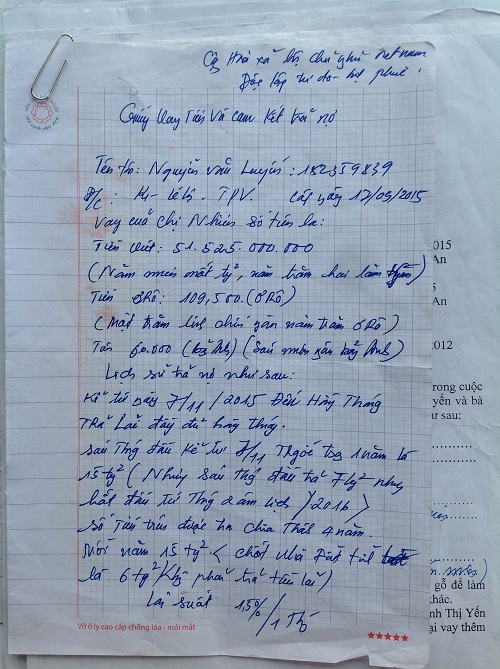 Cộng Hòa xã hội chủ nghĩa việt nam
Độc lập tự do - hạnh phúc
Giấy Vay Tiền và cam kết trả nợ
Tên tôi: Nguyễn văn Luyến: 182359839
Đ/c: TPV. cấp ngày 12/09/2015
Vay của chị Nhiên số tiền là:
Tiền việt: 51.525.000.000
(Năm mươi mốt tỷ, năm trăm hai lăm triệu)
Tiền ơRô: 109,500. (ơRô)
(một trăm linh chín ngàn năm trăm ơRô)
60.000 (bảng Anh) (Sáu mươi ngàn bảng Anh)
Lịch sử trả nợ như sau:
Kể từ ngày 7/11/2015 Đến Hàng Tháng
TRả Lãi đầy đủ hàng tháng.
sáu Tháng đầu kể từ 7/11 TRgốc 1 năm là
15 tỷ (Nhưng sáu tháng đầu trả 7 tỷ nhưng
bắt đầu từ Tháng 2 âm lịch 2016)
số Tiền trên được trả chia Thành 4 năm.
mỗi năm 15 tỷ
là 6 tỷ phải trả
Lãi suất 15%/1 Thg
Vở ô ly cao cấp chống lóa - mỏi mắt
2015
An
5
An
2012
trong cuộc
yến và bà
ư sau:
gỗ để làm
khác.
nh Thị Yến
ại vay thêm